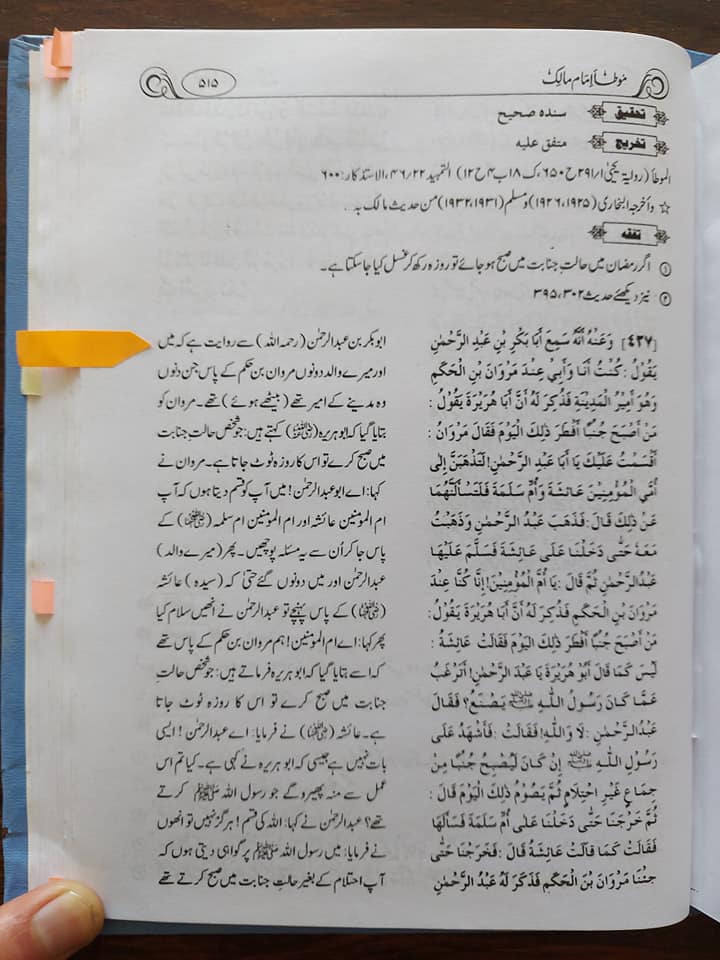 موطأ إمام مالك
۵۱۵
تحقیق سندہ صحیح
تخریج متفق علیہ
الموطأ (روایۃ یحییٰ ۲۹۱/۱ ح ۶۵۰، ک ۱۸ ب ۴ ح ۱۲) التمہید ۴۶/۲۲، الاستذکار: ۶۰۰
☆ وأخرجہ البخاری (۱۹۲۵، ۱۹۲۶) ومسلم (۱۹۳۱، ۱۹۳۲) من حدیث مالک بہ .
تفقہ
① اگر رمضان میں حالتِ جنابت میں صبح ہو جائے تو روزہ رکھ کر غسل کیا جا سکتا ہے۔
② نیز دیکھئے حدیث ۳۰۲، ۳۹۵
[٤٣٧] وَعَنْهُ أَنَّهُ سَمِعَ أَبَا بَكْرِ بْنِ عَبْدِ الرَّحْمٰنِ
يَقُوْلُ: كُنْتُ أَنَا وَأَبِيْ عِنْدَ مَرْوَانَ بْنِ الْحَكَمِ
وَهُوَ أَمِيْرُ الْمَدِيْنَةِ فَذُكِرَ لَهُ أَنَّ أَبَا هُرَيْرَةَ يَقُوْلُ:
مَنْ أَصْبَحَ جُنُبًا أَفْطَرَ ذٰلِكَ الْيَوْمَ فَقَالَ مَرْوَانُ:
أَقْسَمْتُ عَلَيْكَ يَا أَبَا عَبْدِ الرَّحْمٰنِ! لَتَذْهَبَنَّ إِلٰى
أُمَّيِ الْمُؤْمِنِيْنَ عَائِشَةَ وَأُمِّ سَلَمَةَ فَلَتَسْأَلَنَّهُمَا
عَنْ ذٰلِكَ قَالَ: فَذَهَبَ عَبْدُ الرَّحْمٰنِ وَذَهَبْتُ
مَعَهُ حَتّٰى دَخَلْنَا عَلٰى عَائِشَةَ فَسَلَّمَ عَلَيْهَا
عَبْدُ الرَّحْمٰنِ ثُمَّ قَالَ: يَا أُمَّ الْمُؤْمِنِيْنَ! إِنَّا كُنَّا عِنْدَ
مَرْوَانَ بْنِ الْحَكَمِ فَذُكِرَ لَهُ أَنَّ أَبَا هُرَيْرَةَ يَقُوْلُ:
مَنْ أَصْبَحَ جُنُبًا أَفْطَرَ ذٰلِكَ الْيَوْمَ فَقَالَتْ عَائِشَةُ:
لَيْسَ كَمَا قَالَ أَبُوْ هُرَيْرَةَ يَا عَبْدَ الرَّحْمٰنِ! أَتَرْغَبُ
عَمَّا كَانَ رَسُوْلُ اللّٰهِ ﷺ يَصْنَعُ؟ فَقَالَ
عَبْدُ الرَّحْمٰنِ: لَا وَاللّٰهِ! فَقَالَتْ: فَأَشْهَدُ عَلٰى
رَسُوْلِ اللّٰهِ ﷺ إِنْ كَانَ لَيُصْبِحُ جُنُبًا مِنْ
جِمَاعٍ غَيْرِ احْتِلَامٍ ثُمَّ يَصُوْمُ ذٰلِكَ الْيَوْمَ قَالَ:
ثُمَّ خَرَجْنَا حَتّٰى دَخَلْنَا عَلٰى أُمِّ سَلَمَةَ فَسَأَلَهَا
فَقَالَتْ كَمَا قَالَتْ عَائِشَةُ قَالَ: فَخَرَجْنَا حَتّٰى
جِئْنَا مَرْوَانَ بْنَ الْحَكَمِ فَذَكَرَ لَهُ عَبْدُ الرَّحْمٰنِ
ابوبکر بن عبدالرحمٰن (رحمہ اللہ) سے روایت ہے کہ میں
اور میرے والد دونوں مروان بن حکم کے پاس جن دنوں
وہ مدینے کے امیر تھے (بیٹھے ہوئے) تھے۔ مروان کو
بتایا گیا کہ ابو ہریرہ (رضی اللہ عنہ) کہتے ہیں: جو شخص حالتِ جنابت
میں صبح کرے تو اس کا روزہ ٹوٹ جاتا ہے۔ مروان نے
کہا: اے ابو عبدالرحمٰن! میں آپ کو قسم دیتا ہوں کہ آپ
ام المومنین عائشہ اور ام المومنین ام سلمہ (رضی اللہ عنہما) کے
پاس جا کر اُن سے یہ مسئلہ پوچھیں۔ پھر (میرے والد)
عبدالرحمٰن اور میں دونوں گئے حتیٰ کہ (سیدہ) عائشہ
(رضی اللہ عنہا) کے پاس پہنچے تو عبدالرحمٰن نے انھیں سلام کیا
پھر کہا: اے ام المومنین! ہم مروان بن حکم کے پاس تھے
کہ اسے بتایا گیا کہ ابو ہریرہ فرماتے ہیں: جو شخص حالتِ
جنابت میں صبح کرے تو اس کا روزہ ٹوٹ جاتا
ہے۔ عائشہ (رضی اللہ عنہا) نے فرمایا: اے عبدالرحمٰن! ایسی
بات نہیں ہے جیسی کہ ابو ہریرہ نے کہی ہے۔ کیا تم اس
عمل سے منہ پھیرو گے جو رسول اللہ ﷺ کرتے
تھے؟ عبدالرحمٰن نے کہا: اللہ کی قسم! ہرگز نہیں تو انھوں
نے فرمایا: میں رسول اللہ ﷺ پر گواہی دیتی ہوں کہ
آپ احتلام کے بغیر حالتِ جنابت میں صبح کرتے تھے